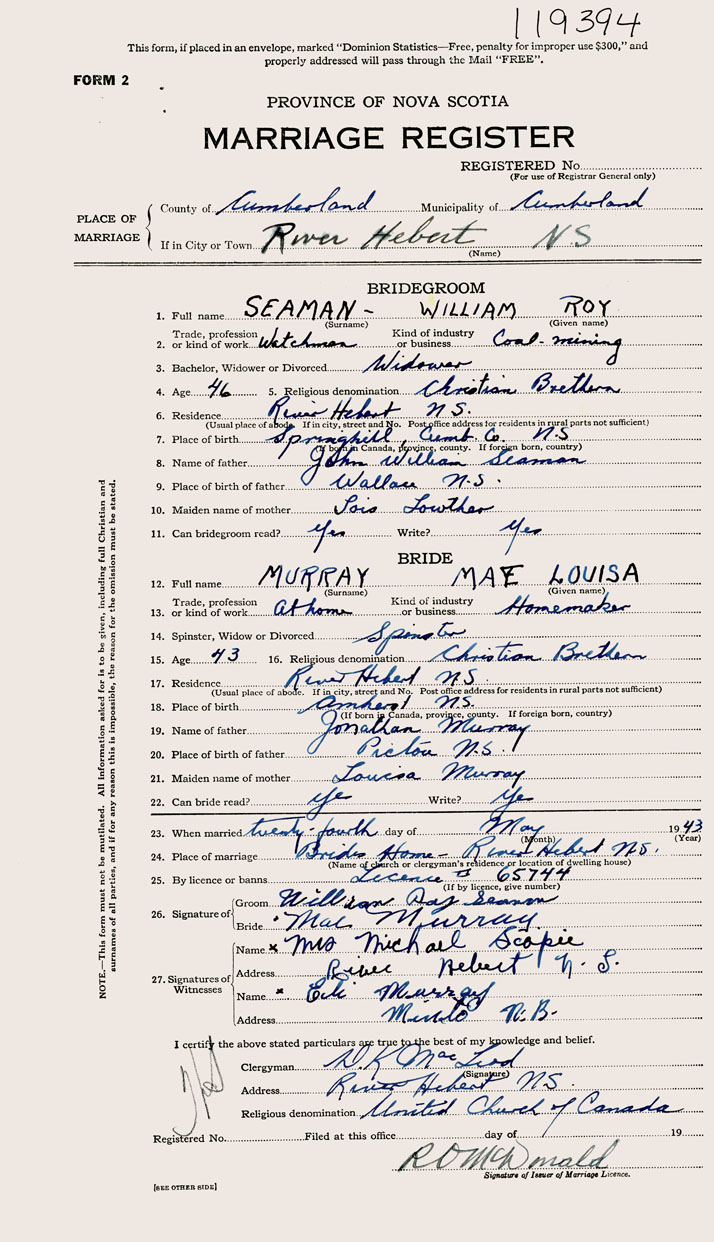 119394
This form, if placed in an envelope, marked "Dominion Statistics—Free, penalty for improper use $300," and
properly addressed will pass through the Mail "FREE".
FORM 2
PROVINCE OF NOVA SCOTIA
MARRIAGE REGISTER
REGISTERED No.
(For use of Registrar General only)
PLACE OF MARRIAGE
County of Cumberland Municipality of Cumberland
If in City or Town River Hebert N S
(Name)
BRIDEGROOM
1. Full name SEAMAN - WILLIAM ROY
(Surname) (Given name)
2. Trade, profession or kind of work Watchman Kind of industry or business Coal-mining
3. Bachelor, Widower or Divorced Widower
4. Age 46 5. Religious denomination Christian Brethern
6. Residence River Hebert N S.
(Usual place of abode. If in city, street and No. Post office address for residents in rural parts not sufficient)
7. Place of birth Springhill, Cumb. Co. N S
(If born in Canada, province, county. If foreign born, country)
8. Name of father John William Seaman
9. Place of birth of father Wallace N.S.
10. Maiden name of mother Lois Lowther
11. Can bridegroom read? Yes Write? Yes
BRIDE
12. Full name MURRAY MAE LOUISA
(Surname) (Given name)
13. Trade, profession or kind of work At home Kind of industry or business Homemaker
14. Spinster, Widow or Divorced Spinster
15. Age 43 16. Religious denomination Christian Brethern
17. Residence River Hebert N S.
(Usual place of abode. If in city, street and No. Post office address for residents in rural parts not sufficient)
18. Place of birth Amherst N.S.
(If born in Canada, province, county. If foreign born, country)
19. Name of father Jonathan Murray
20. Place of birth of father Pictou N.S.
21. Maiden name of mother Louisa Murray
22. Can bride read? Yes Write? Yes
23. When married twenty-fourth day of May 1943
(Month) (Year)
24. Place of marriage Brides Home - River Hebert N.S.
(Name of church or clergyman's residence or location of dwelling house)
25. By licence or banns Licence # 65744
(If by licence, give number)
26. Signature of
Groom William Roy Seaman
Bride Mae Murray
27. Signatures of Witnesses
Name x Mrs Michael
Address River Hebert N. S.
Name x Eli Murray
Address Minto N.B.
I certify the above stated particulars are true to the best of my knowledge and belief.
Clergyman D K MacLeod
(Signature)
Address River Hebert N S.
Religious denomination United Church of Canada
Registered No. Filed at this office day of 19
R O McDonald
Signature of Issuer of Marriage Licence.
[SEE OTHER SIDE]
NOTE.—This form must not be mutilated. All information asked for is to be given, including full Christian and
surnames of all parties, and if for any reason this is impossible, the reason for the omission must be stated.